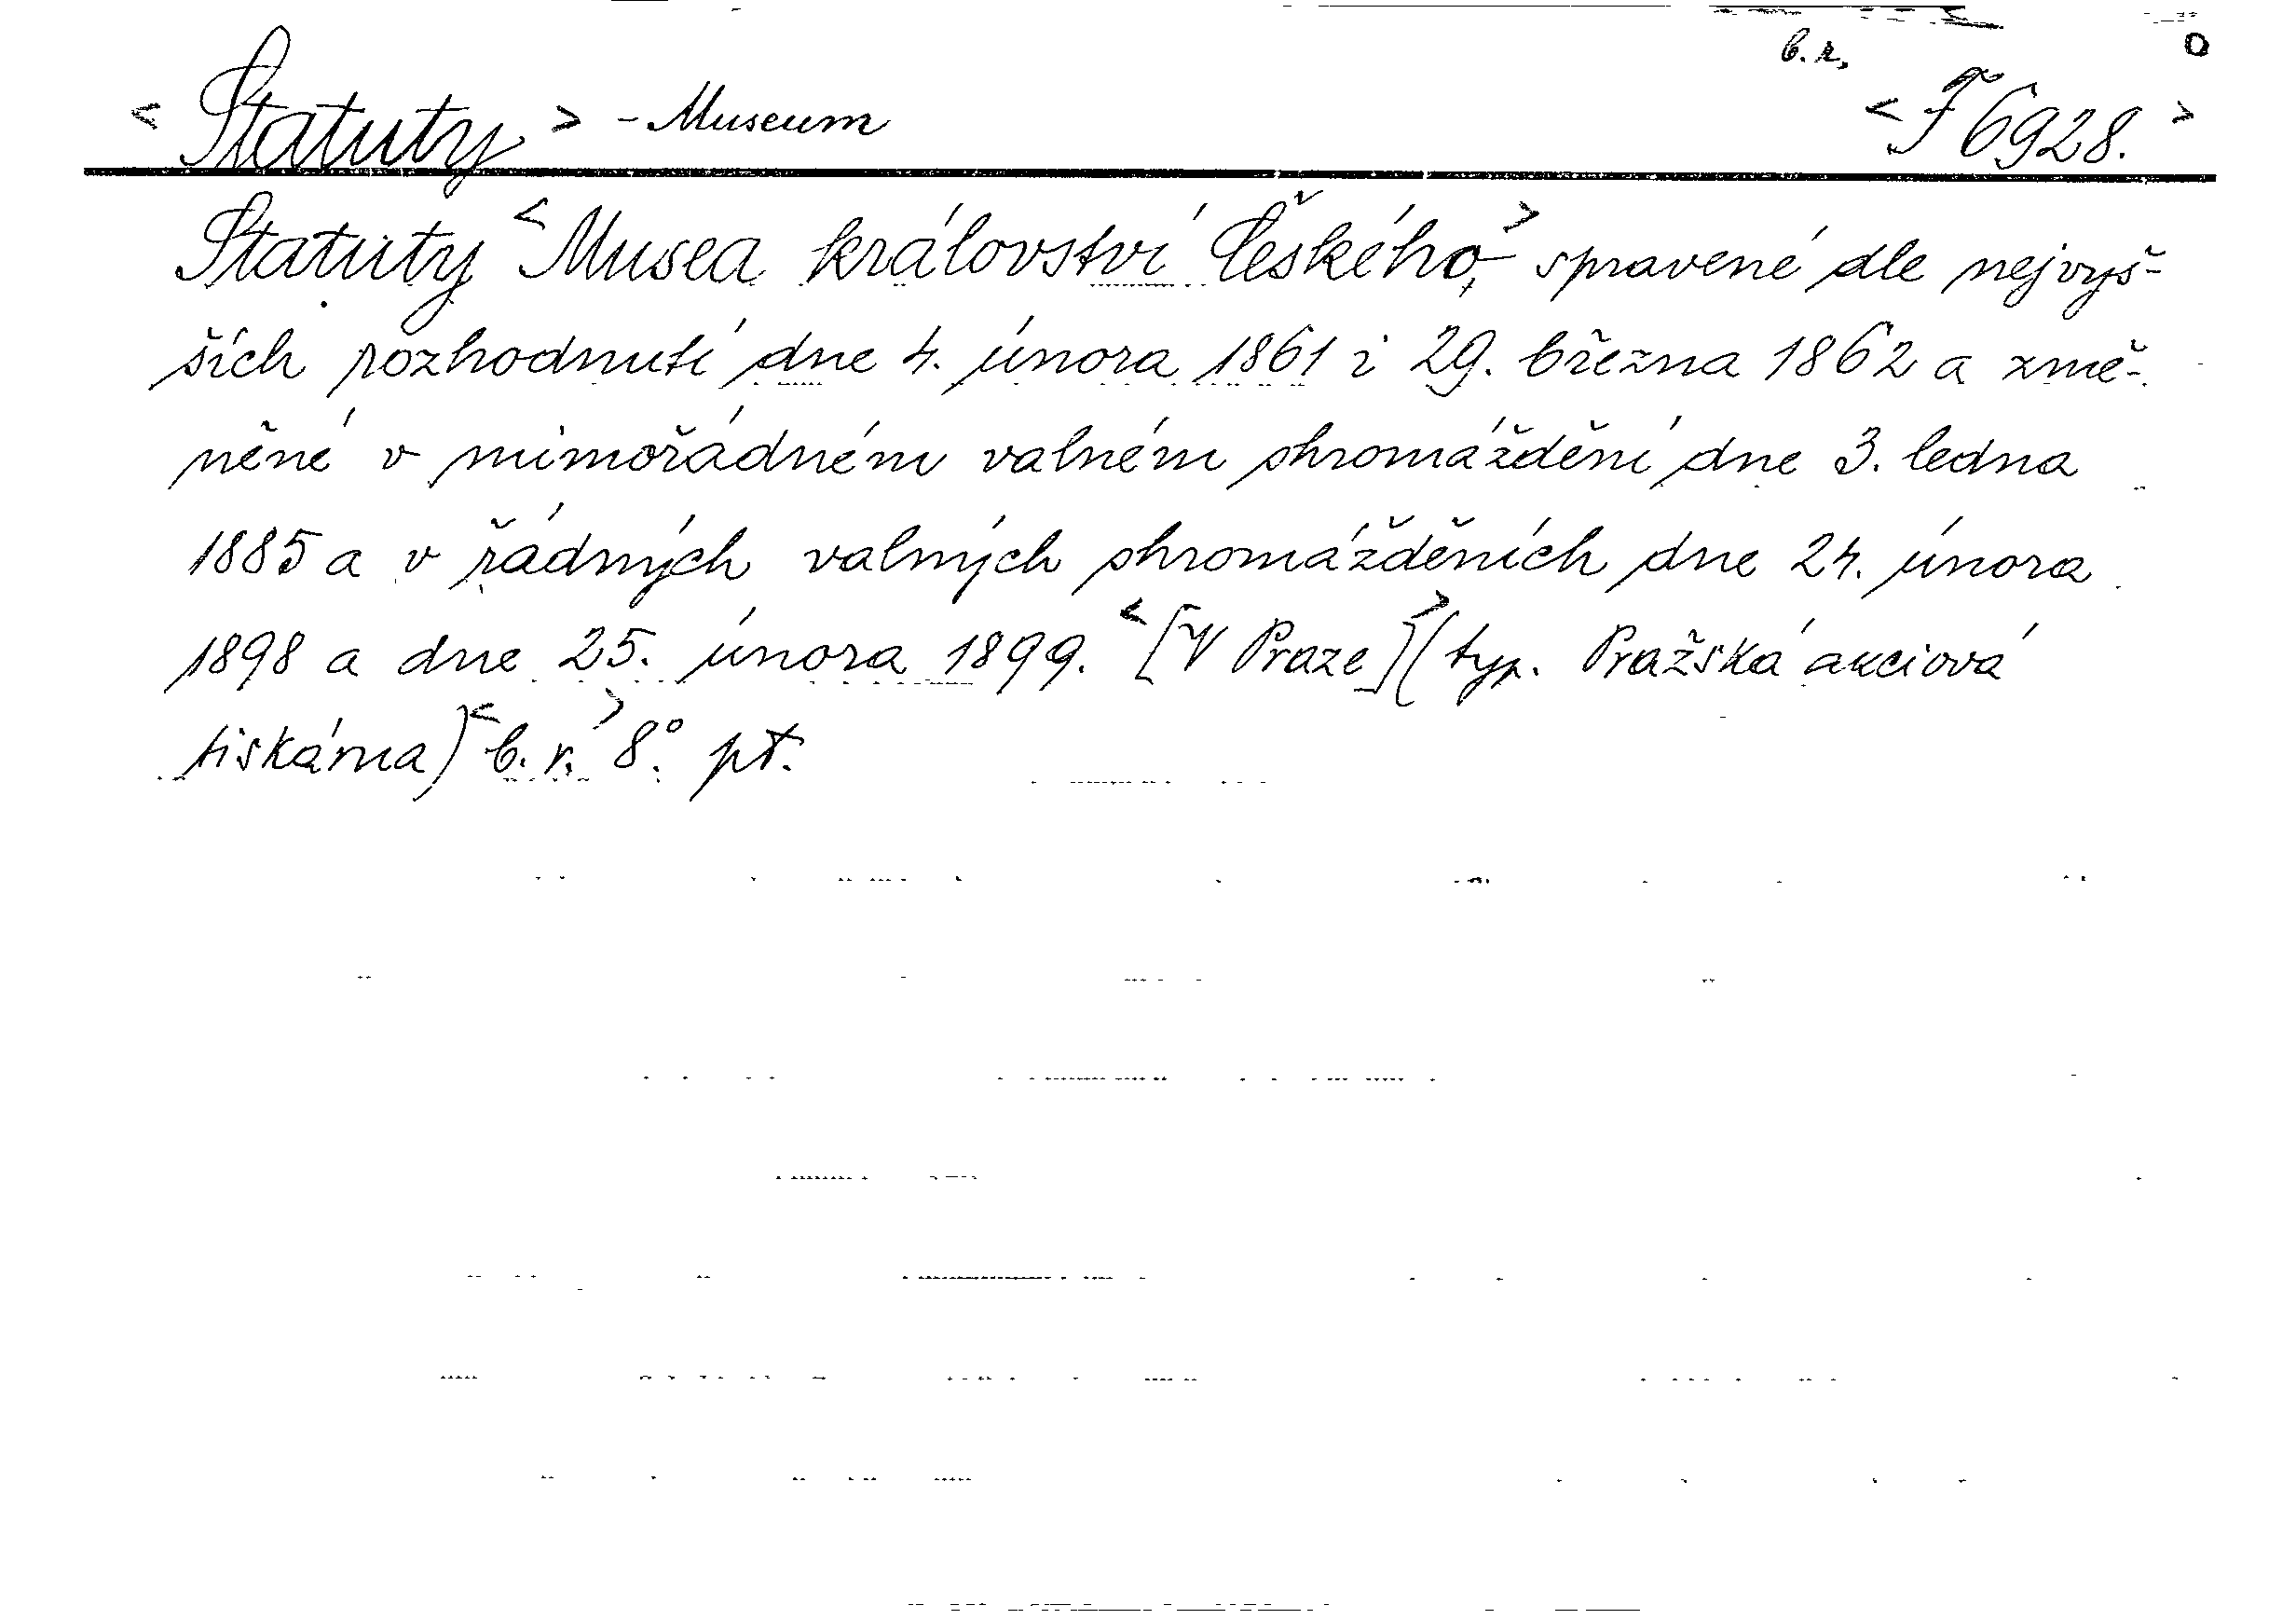 b. r. o
<Statuty> - Museum <F 6928.>
Statuty <Musea království Českého,> spravené dle nejvyš-
ších rozhodnutí dne 4. února 1861 i 29. března 1862 a změ-
něné v mimořádném valném shromáždění dne 3. ledna
1885 a v řádných valných shromážděních dne 24. února
1898 a dne 25. února 1899. <[V Praze]> (typ. Pražská akciová
tiskárna) <b. r.> 8°. př.